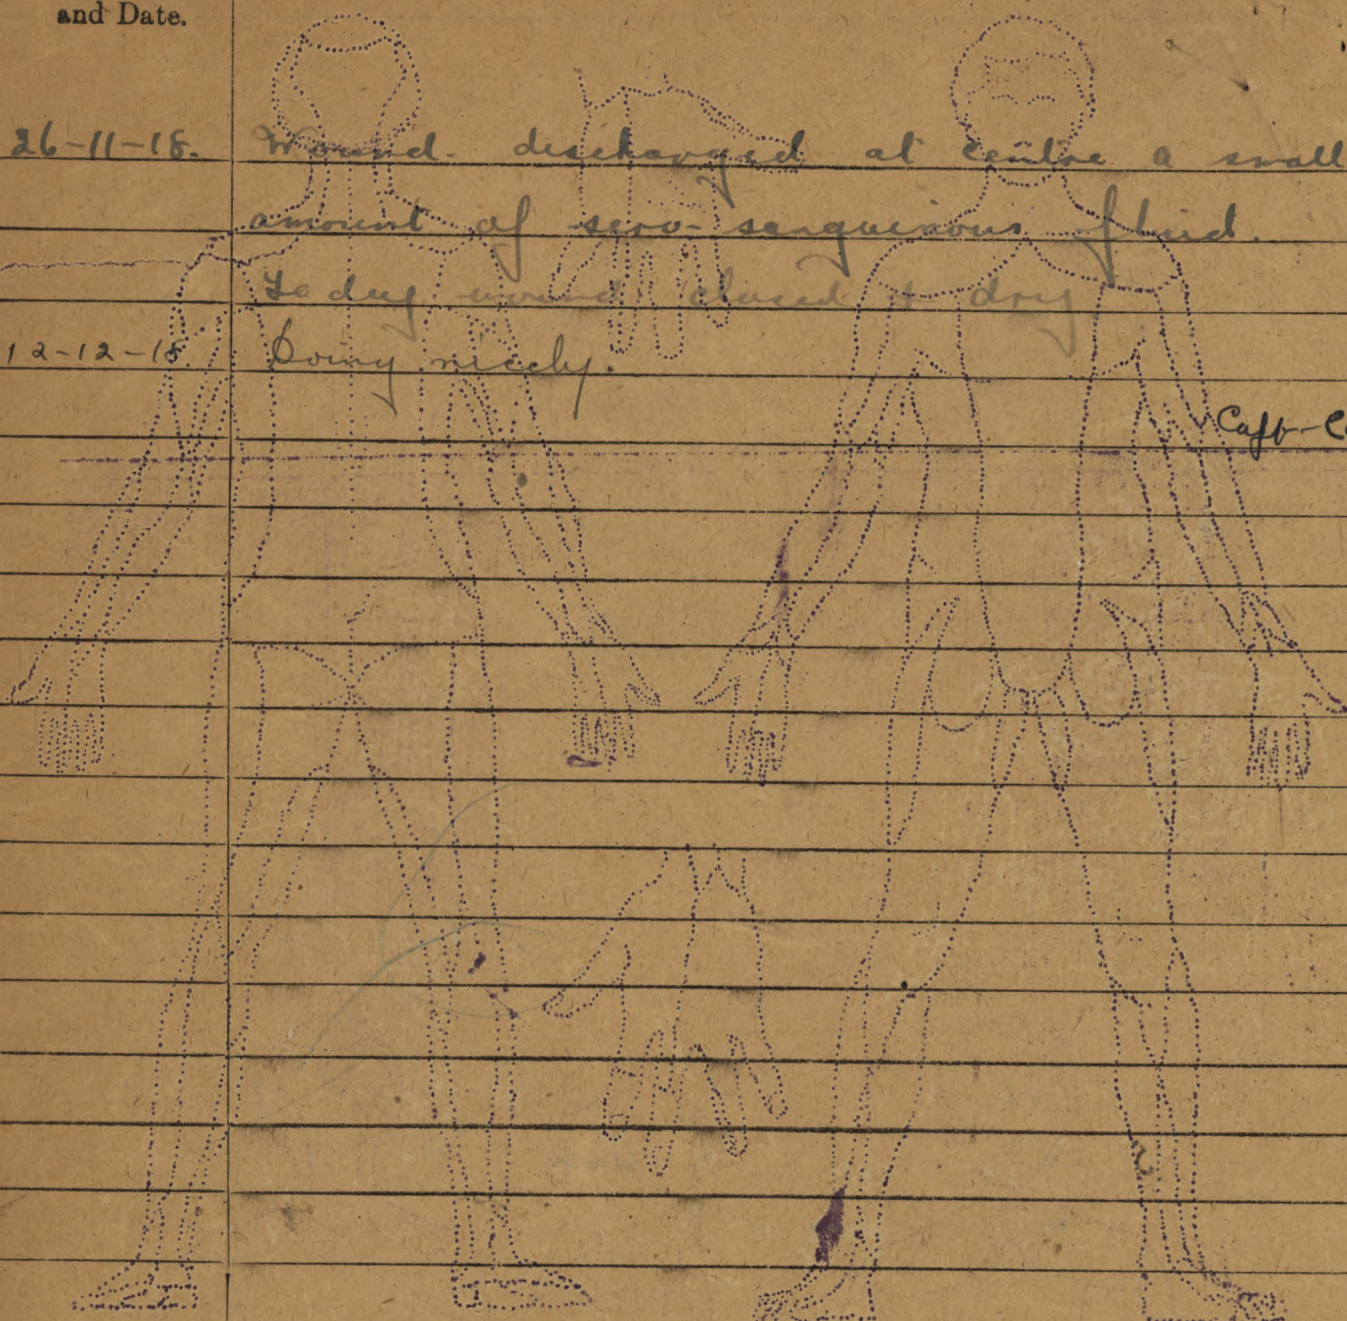 and Date.
26-11-18. Wound. discharged at centre a small
amount of sero-sanguinous fluid.
To day wound closed & dry
12-12-18 Doing nicely.
Capt-